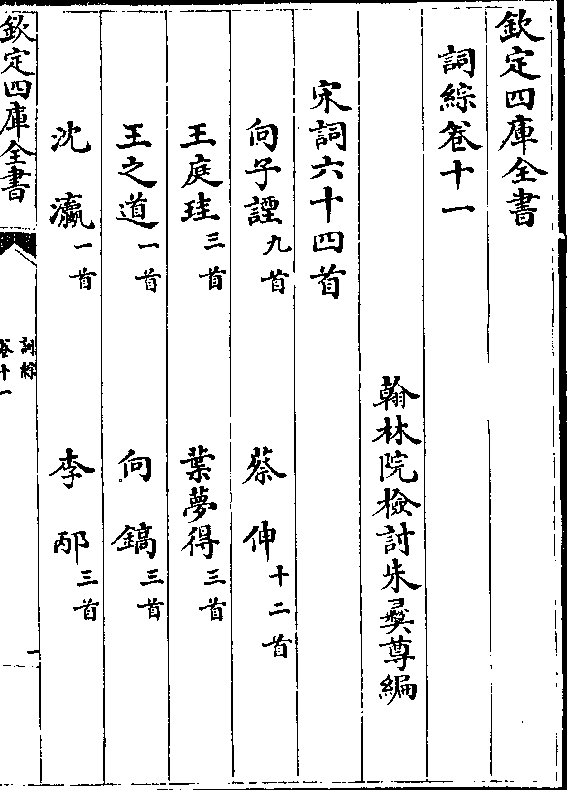 欽定四庫全書
詞綜卷十一
翰林院檢討朱彛尊編
宋詞六十四首
向子諲九首 蔡伸十二首
王庭珪三首 葉夢得三首
王之道一首 向鎬三首
沈瀛一首 李邴三首
欽定四庫全書 詞綜 卷十一 一